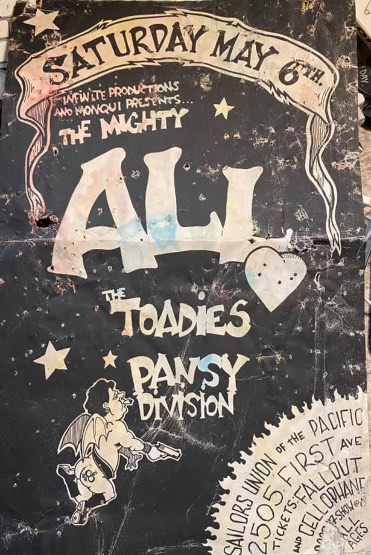 SATURDAY MAY 6TH.
INFINITE PRODUCTIONS
AND MONQUI PRESENTS...
THE MIGHTY
ALL
THE
TOADIES
PANSY
DIVISION
SAILORS UNION OF THE PACIFIC
2505 FIRST AVE
TICKETS: FALLOUT
AND CELLOPHANE
DOORS SHOW@
ALL
AGES